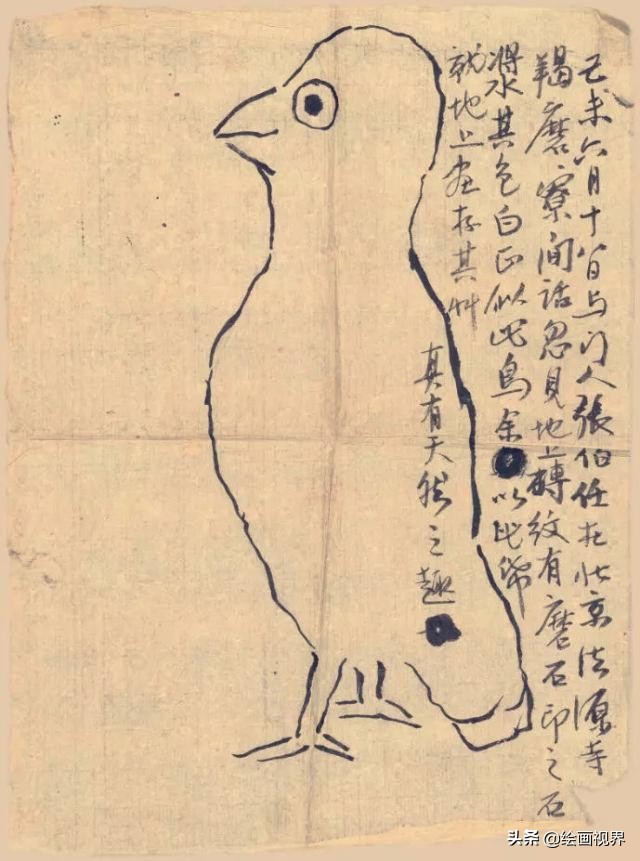 己未六月十八日与门人張伯任在北京法源寺
羯磨寮間話忽見地上磚紋有磨石印之石
漿其色白正似此鳥余以此紙
就地上画存其艸
真有天然之趣
头条 @绘画视界